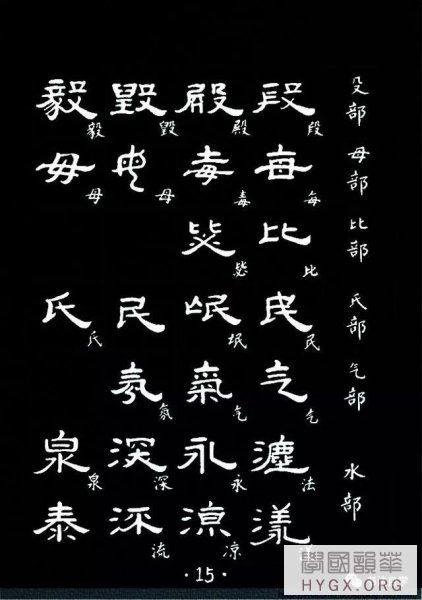 殳部 段段 殿殿 毀毀 毅毅
母部 每每 毒毒 母母 毋母
比部 比比 毖毖
氏部 民民 氓氓 民 氏氏
气部 气乞 氣乞 氛氛
水部 灋法 永永 深深 泉泉
漾 凉凉 流流 泰
·15·
學國韻華
HYGX.ORG